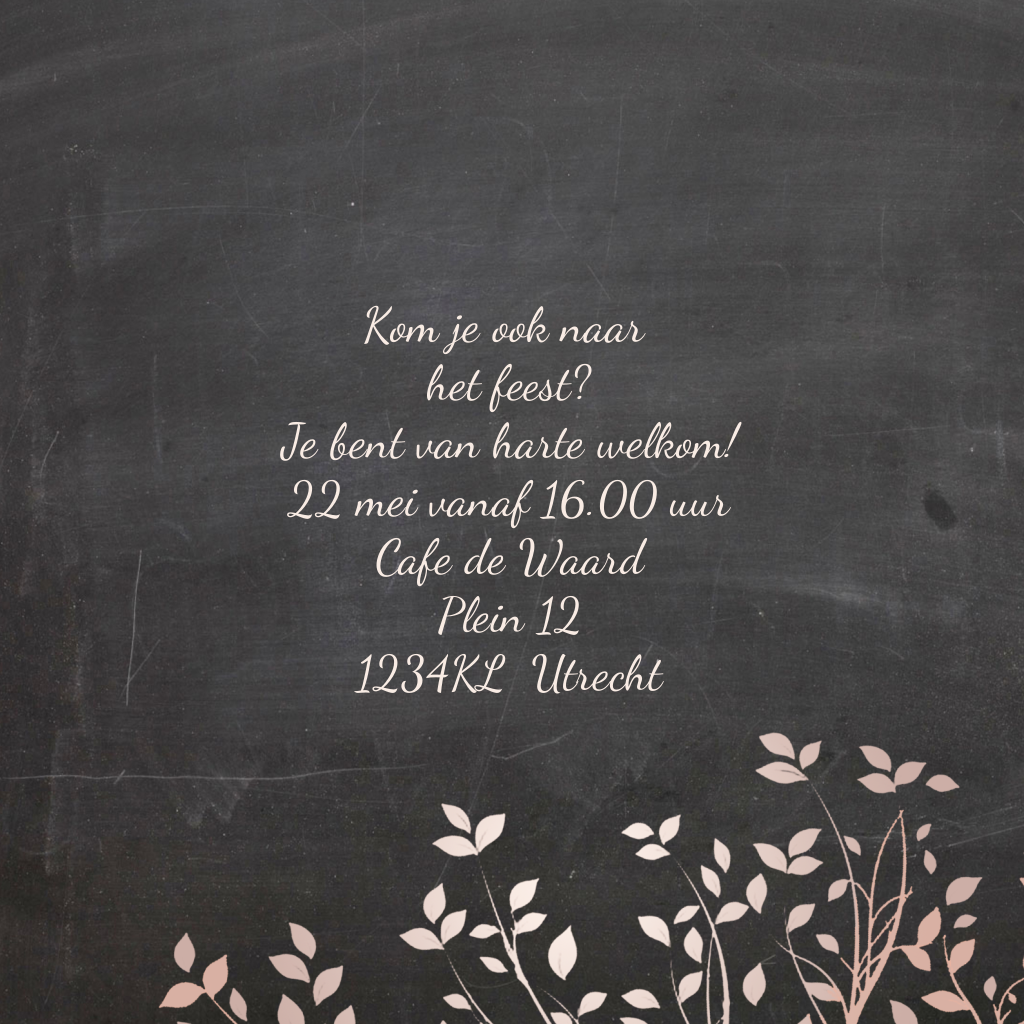 Kom je ook naar
het feest?
Je bent van harte welkom!
22 mei vanaf 16.00 uur
Cafe de Waard
Plein 12
1234KL  Utrecht